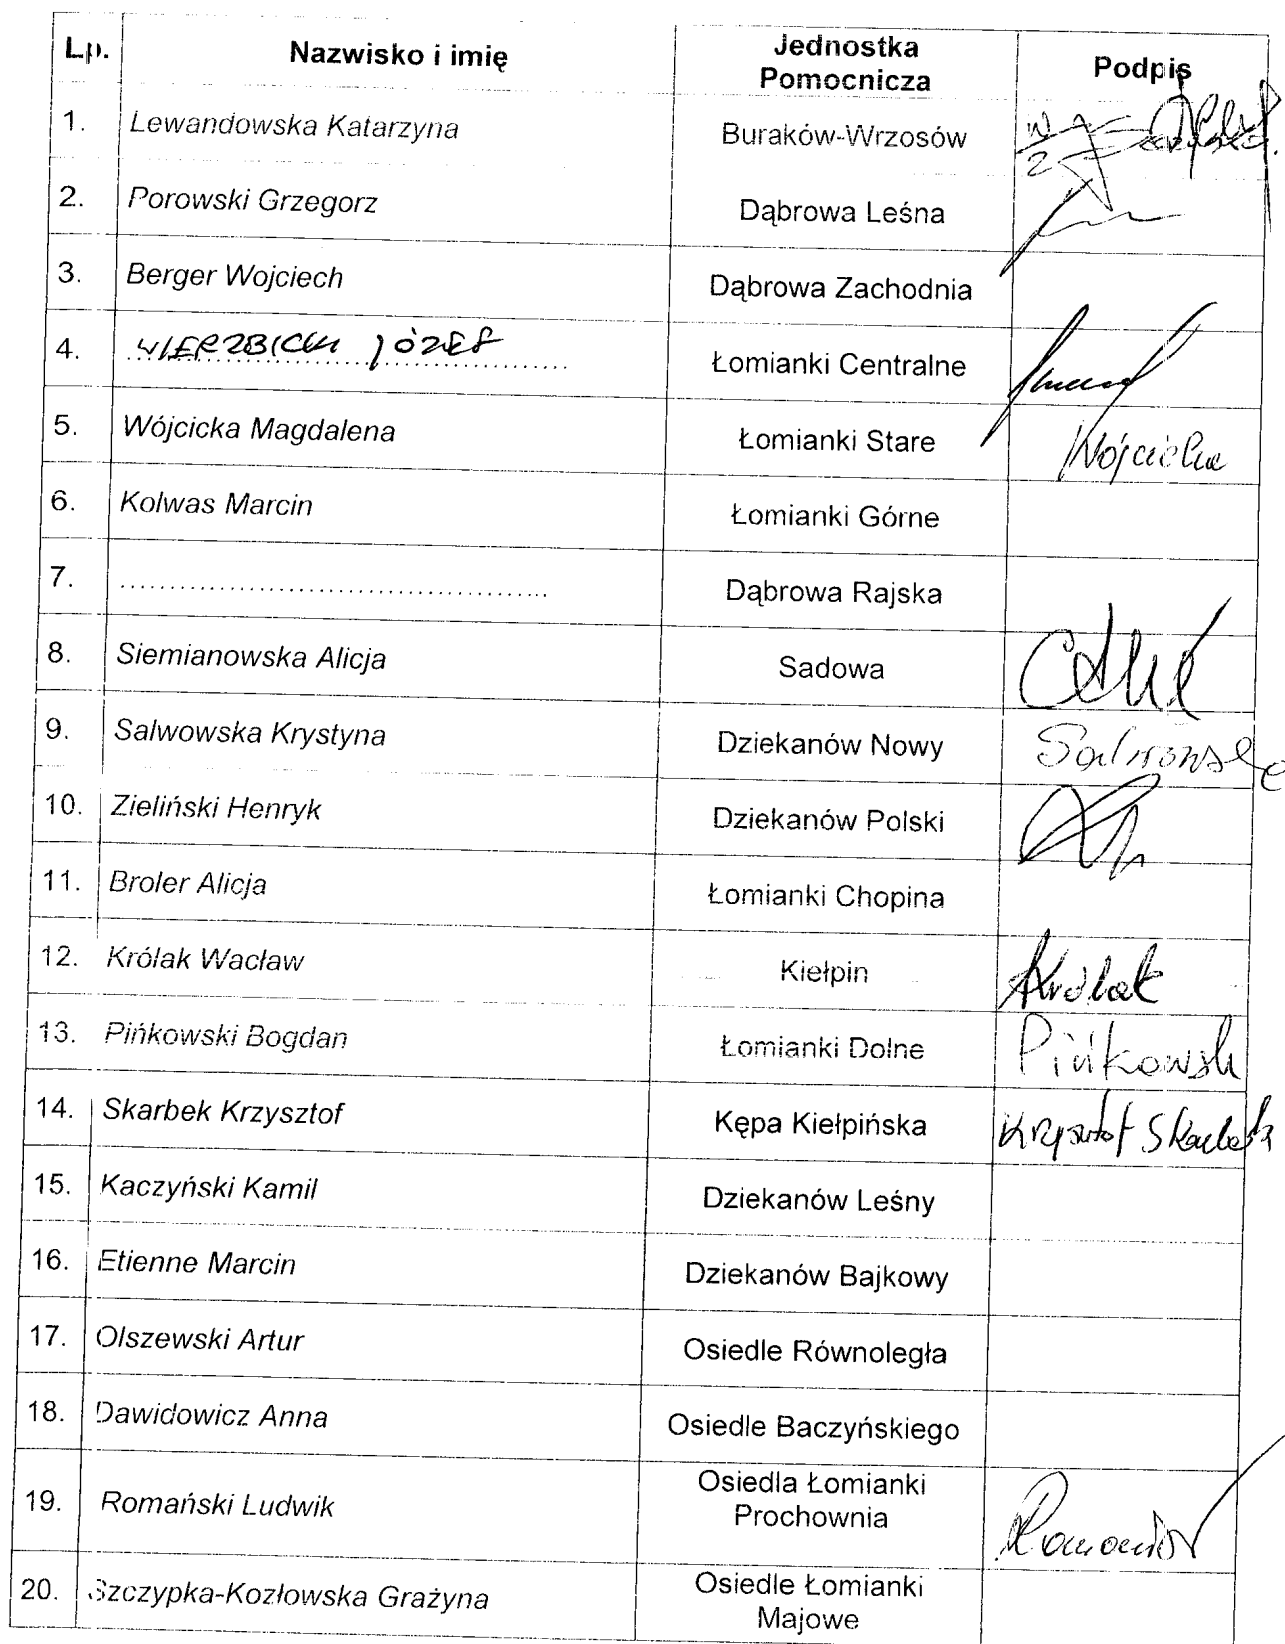 Lp. Nazwisko i imię Jednostka Pomocnicza Podpis
1. Lewandowska Katarzyna Buraków-Wrzosów w/z
2. Porowski Grzegorz Dąbrowa Leśna
3. Berger Wojciech Dąbrowa Zachodnia
4. WIERZBICKI JÓZEF Łomianki Centralne
5. Wójcicka Magdalena Łomianki Stare Wójcicka
6. Kolwas Marcin Łomianki Górne
7. .......................................... Dąbrowa Rajska
8. Siemianowska Alicja Sadowa
9. Salwowska Krystyna Dziekanów Nowy Salwowska
10. Zieliński Henryk Dziekanów Polski
11. Broler Alicja Łomianki Chopina
12. Królak Wacław Kiełpin Królak
13. Pińkowski Bogdan Łomianki Dolne Pińkowski
14. Skarbek Krzysztof Kępa Kiełpińska Krzysztof Skarbek
15. Kaczyński Kamil Dziekanów Leśny
16. Etienne Marcin Dziekanów Bajkowy
17. Olszewski Artur Osiedle Równoległa
18. Dawidowicz Anna Osiedle Baczyńskiego
19. Romański Ludwik Osiedla Łomianki Prochownia Romański
20. Szczypka-Kozłowska Grażyna Osiedle Łomianki Majowe